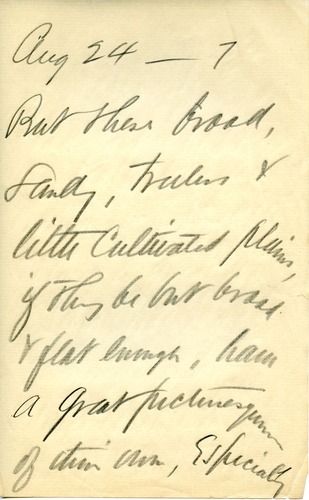 Aug 24 — 7
But these broad,
Sandy, treeless &
little Cultivated plains,
if they be but broad
& flat enough, have
a great picturesqueness
of their own, Especially